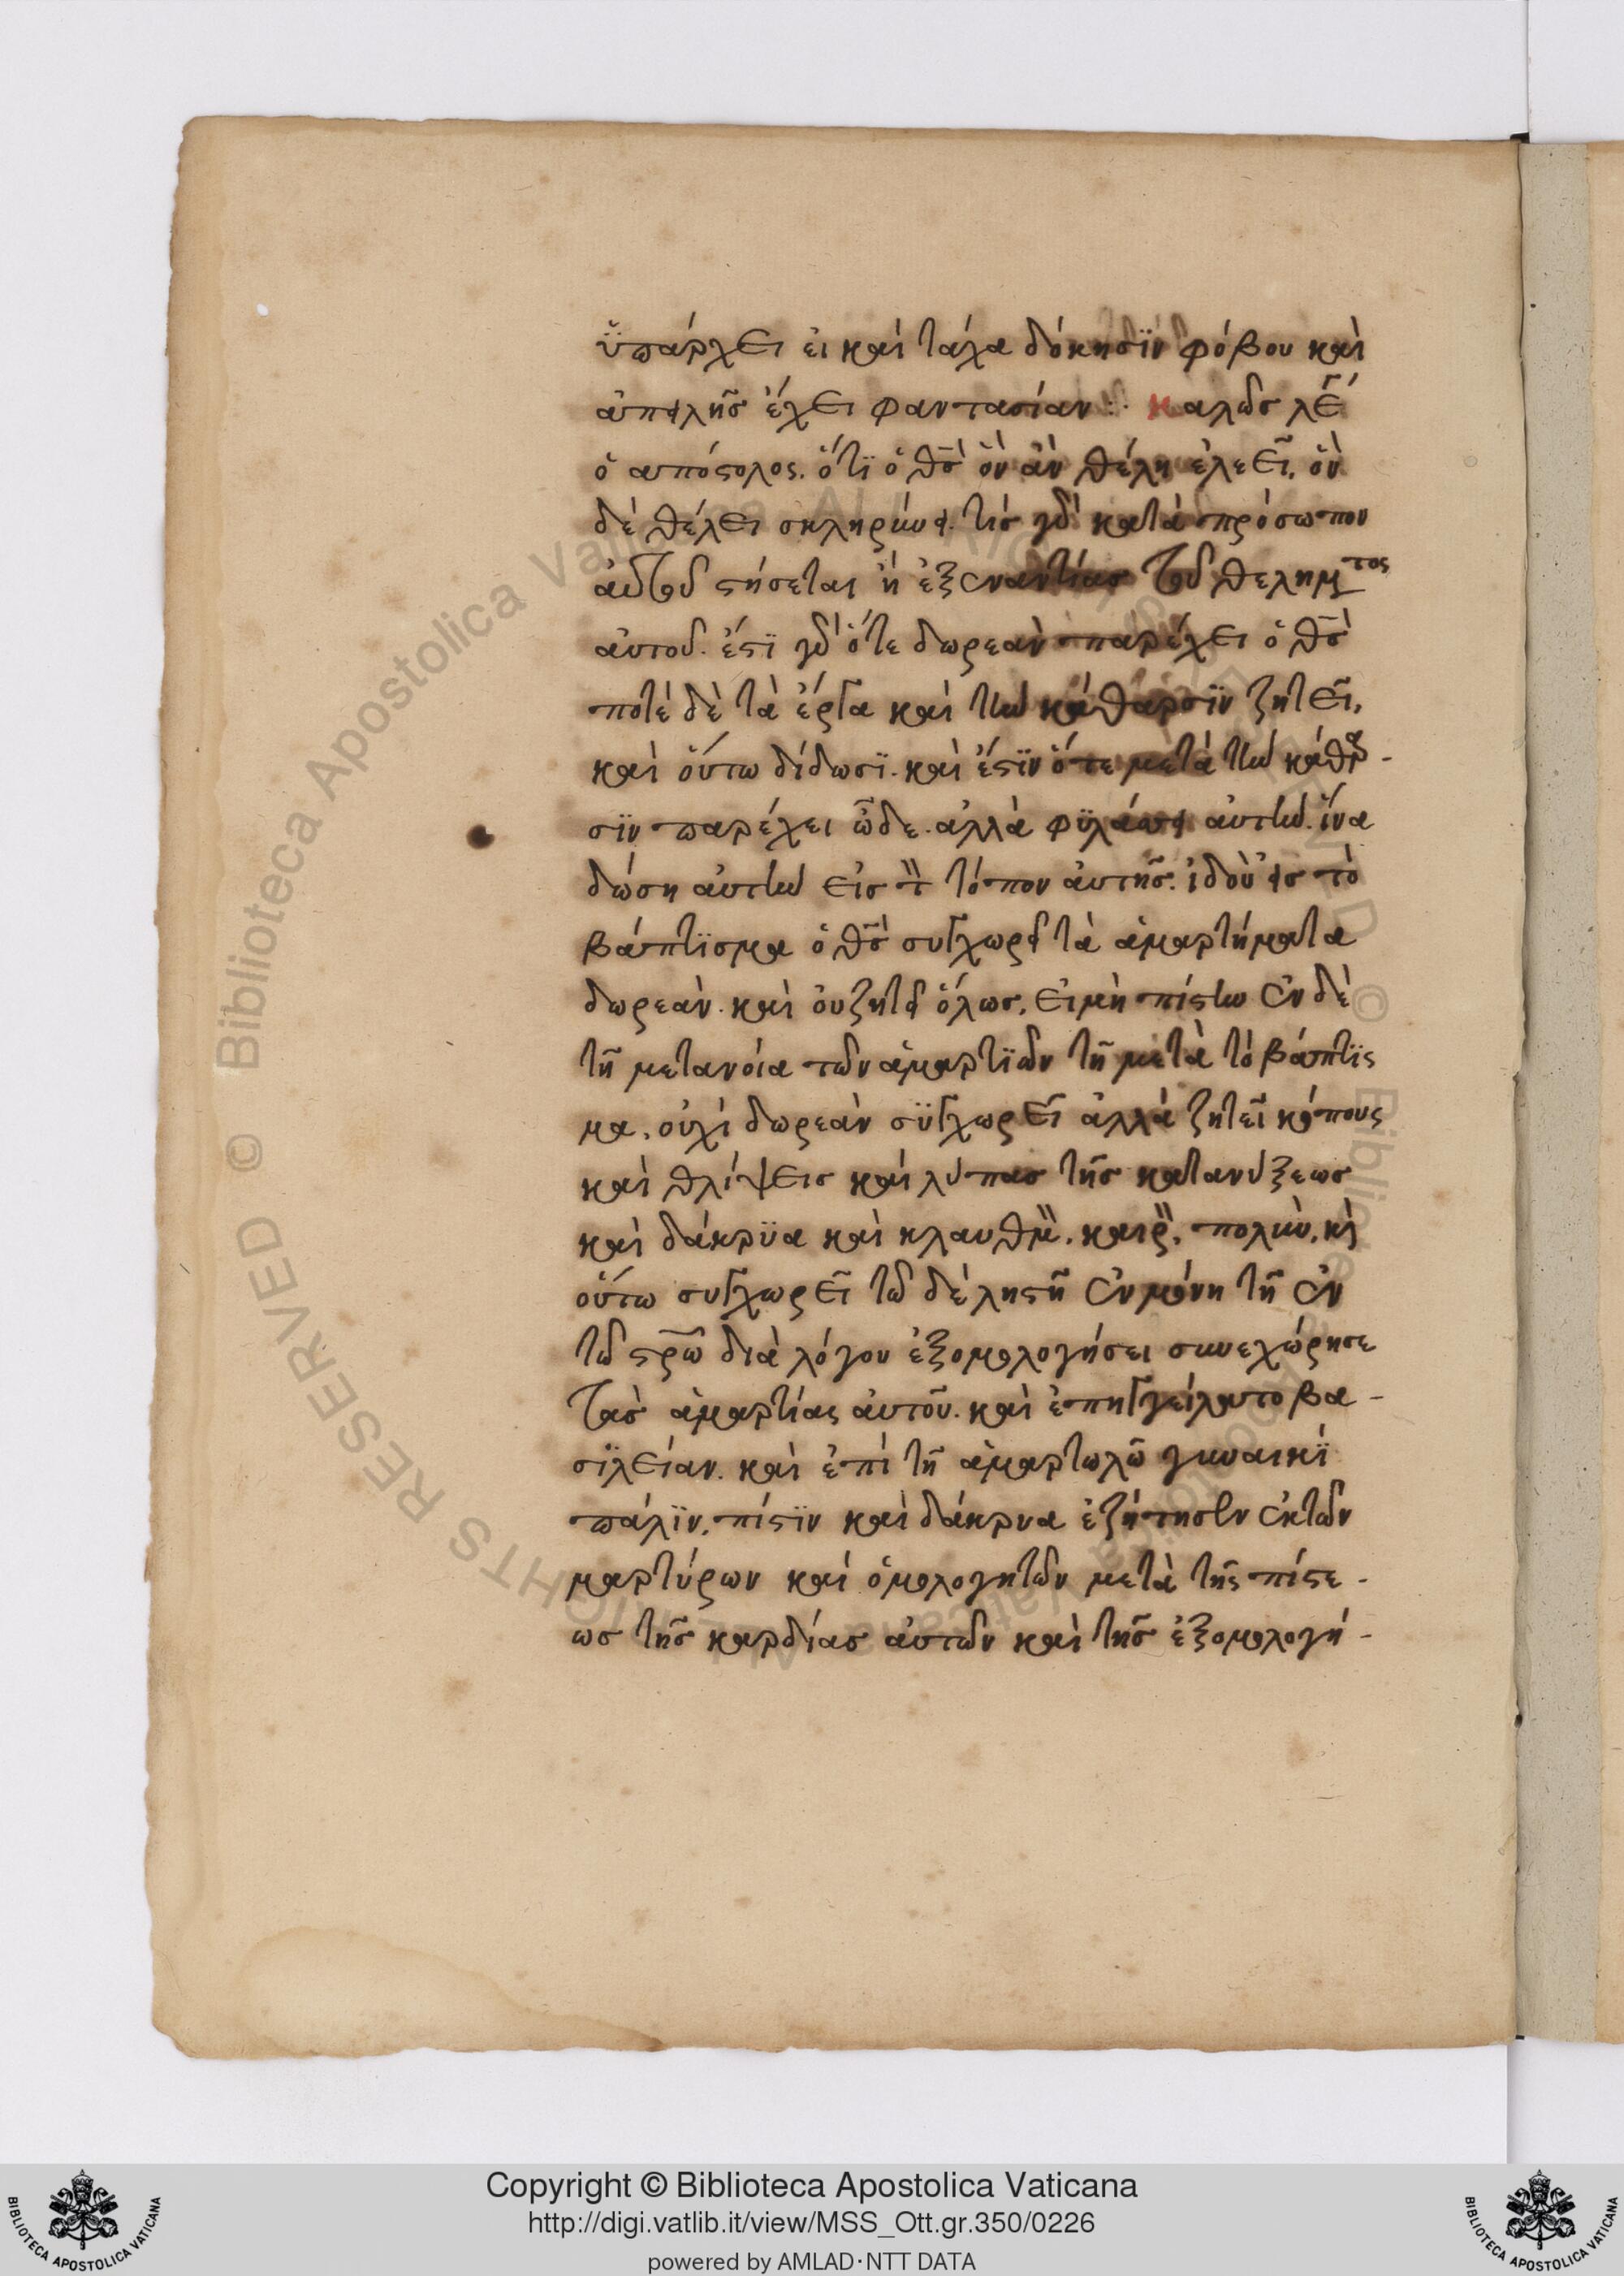 ὕπάρχει ἐι καὶ τάχα δόκησϊν φόβου καὶ
ἀπειλῆς ἔχει φαντασίαν :· καλῶς λέ
ὁ απόστολος. ὅτϊ ὁ θς ὃν ἂν θέλη ἐλεεῖ, ὃν
δὲ θέλει σκληρύνει. τίς γὰρ κατὰ πρόσωπον
ἀυτοῦ στήσεται ἢ ἐξεναντίας τοῦ θελημτος
ἀυτοῦ. ἔστϊ γὰρ ὅτε δωρεὰν παρέχει ὁ θς
ποτὲ δὲ τὰ ἔργα καὶ τὴν κάθαρσϊν ζητεῖ,
καὶ ὅυτω δίδωσϊ. καὶ ἔστϊν ὅτε μετὰ τὴν κάθαρ-
σϊν παρέχει ὧδε. ἀλλὰ φϋλάττει ἀυτὴν. ἵνα
δώση ἀυτὴν εἰς τὸν τόπον ἀυτῆς. ἰδοὺ εἰς τὸ
βάπτϊσμα ὁ θς συγχωρεῖ τὰ ἁμαρτήματα
δωρεὰν. καὶ ὀυζητεῖ ὅλως, εἰμὴ πίστιν ἐν δὲ
τῆ μετανοία τῶν ἁμαρτϊῶν τῆ μετὰ τὸ βάπτϊσ
μα. οὐχὶ δωρεὰν σϋγχωρεῖ ἀλλὰ ζητεῖ κόπους
καὶ θλίψεις καὶ λύπας τῆς κατανύξεως
καὶ δάκρϋα καὶ κλαυθμὸν. καιρὸν, πολὺν, κὶ
ὅυτω συγχωρεῖ τῶ δὲ ληστῆ ἐν μόνη τῆ ἐν
τῶ στρω διὰ λόγου ἐξομολογήσει συνεχώρησε
τὰς ἁμαρτίας ἀυτοῦ. καὶ ἐπηγγείλατο βα-
σϊλείαν. καὶ ἐπὶ τῆ ἁμαρτωλῶ γυναικϊ
πάλϊν, πίστϊν καὶ δάκρυα ἐζήτησεν ἐκτῶν
μαρτύρων καὶ ὁμολογητῶν μετὰ τῆς πίστε-
ως τῆς καρδίας ἀυτῶν καὶ τῆς ἐξομολογή-
Copyright © Biblioteca Apostolica Vaticana
http://digi.vatlib.it/view/MSS_Ott.gr.350/0226
powered by AMLAD·NTT DATA